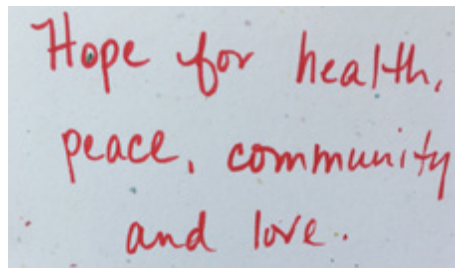 Hope for health,
peace, community
and love.